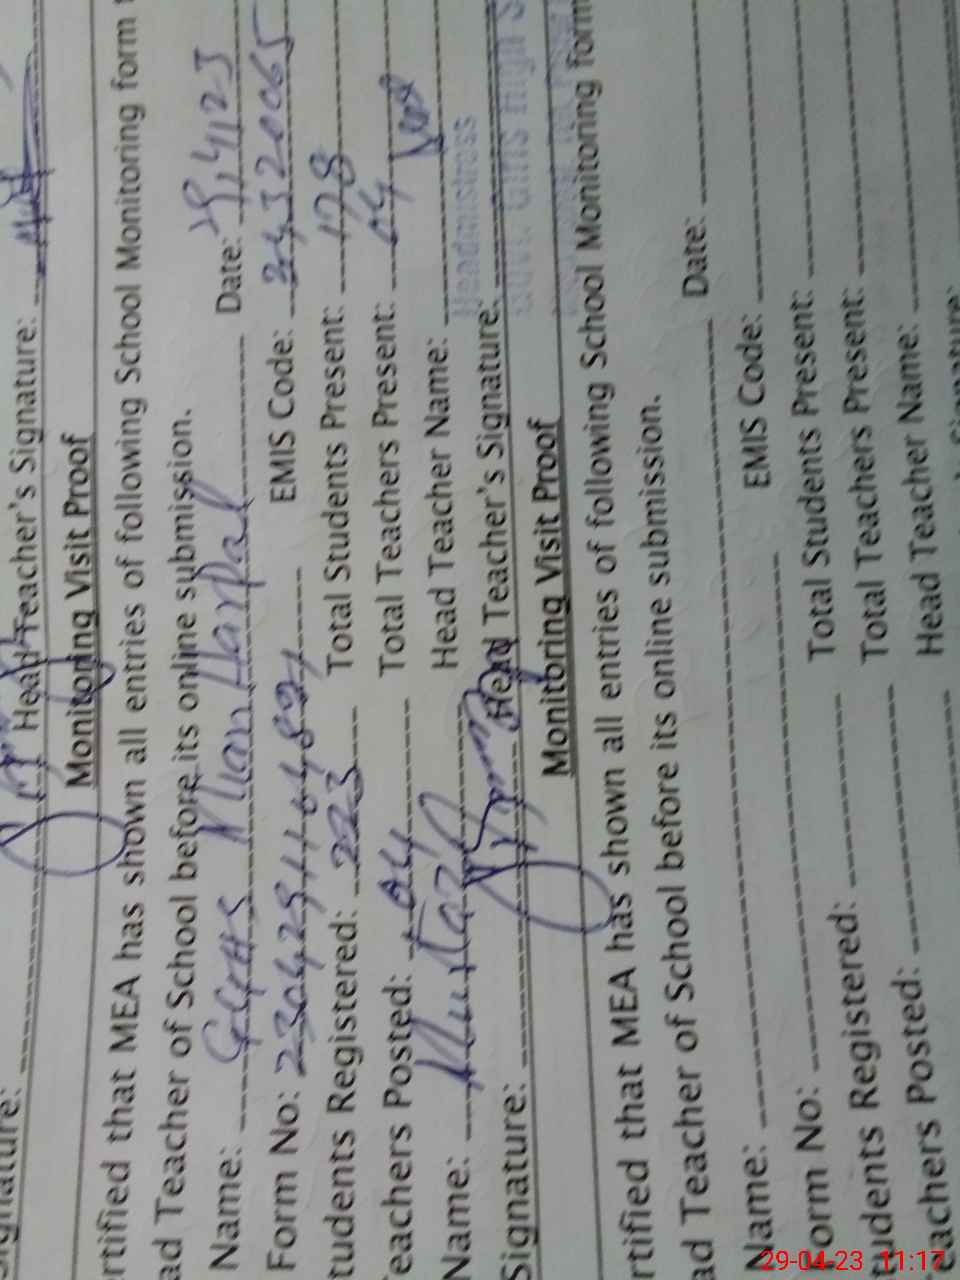 Signature: Head Teacher's Signature:
Monitoring Visit Proof
rtified that MEA has shown all entries of following School Monitoring form
ad Teacher of School before its online submission.
Name: GGHS Date: 29,4,123
Form No: EMIS Code: 24320065
tudents Registered: 223 Total Students Present: 178
eachers Posted: 04 Total Teachers Present: 04
Name: Mumtaz Head Teacher Name:
Headmistress
Signature: Head Teacher's Signature:
Govt. Girls High S
Monitoring Visit Proof
rtified that MEA has shown all entries of following School Monitoring form
ad Teacher of School before its online submission.
Name: Date:
Form No: EMIS Code:
tudents Registered: Total Students Present:
eachers Posted: Total Teachers Present:
Head Teacher Name:
29-04-23 11:17